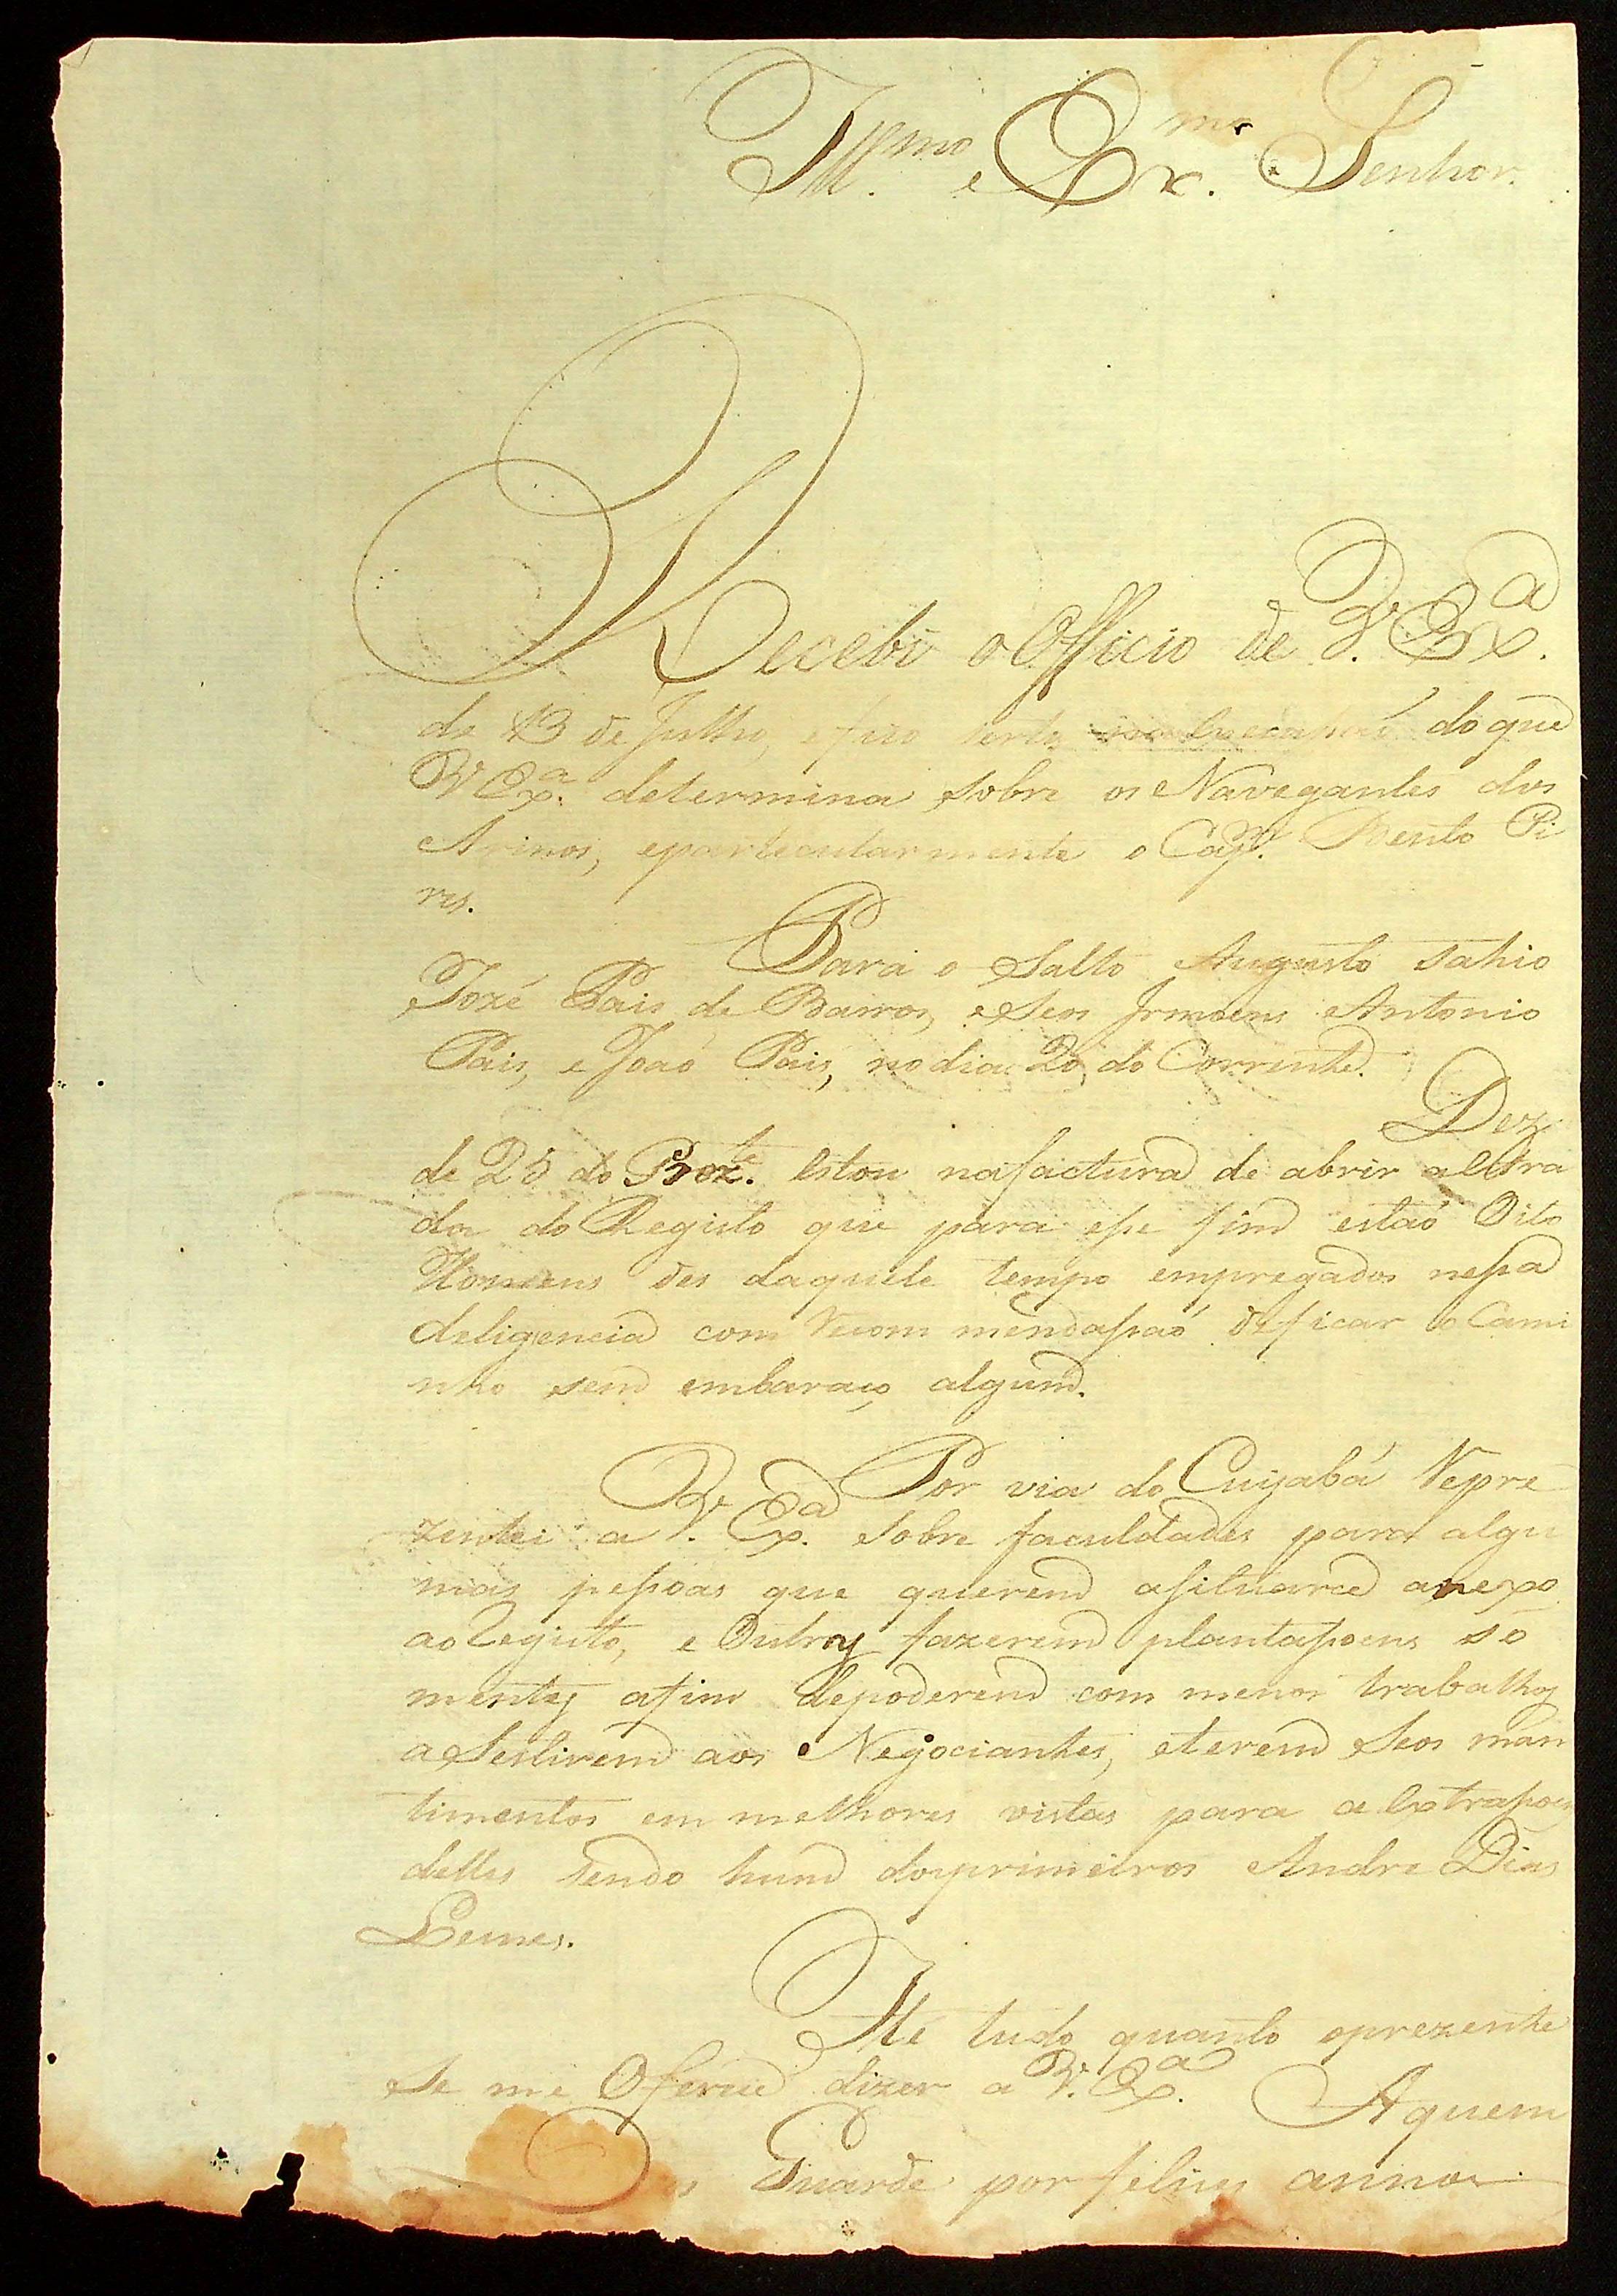 Ill.mo e Ex.mo Senhor.
Recebi o Officio de V. Ex.a
de 13 de Julho, e fico serto do que
V Ex.a determina sobre os Navegantes dos
Arinos, eparteculармente o Cap.m Bento Pi
res.
Para o Salto Augusto sahio
Jozé Pais de Barros, e Seos Irmaens Antonio
Pais, e Joaó Pais, no dia 20 do Corrente.
Dez
de 25 do Prez.te estou nafactura de abrir a Estra
da do Registo que para esse fim estaó Oito
Homens des daquele tempo empregados nessa
deligencia com recom mendassaó deficar o Cami
nho sem embaraço algum.
Por via do Cuyabá Repre
zentei a V. Ex.a sobre faculdades para algu
mas pessoas que querem asituarce anexo
ao Registo, e Outros fazerem plantassoens só
mentes afim depoderem com menos trabalhos
aSestirem aos Negociantes, eterem Seos man
timentos em melhores vistas para a Extrassoen
delles sendo hum dosprimeiros Andre Dias
Lemes.
Hé tudo quanto oprezente
Se me Oferece dizer a V. Ex.a Aquem
Guarde por felices annos